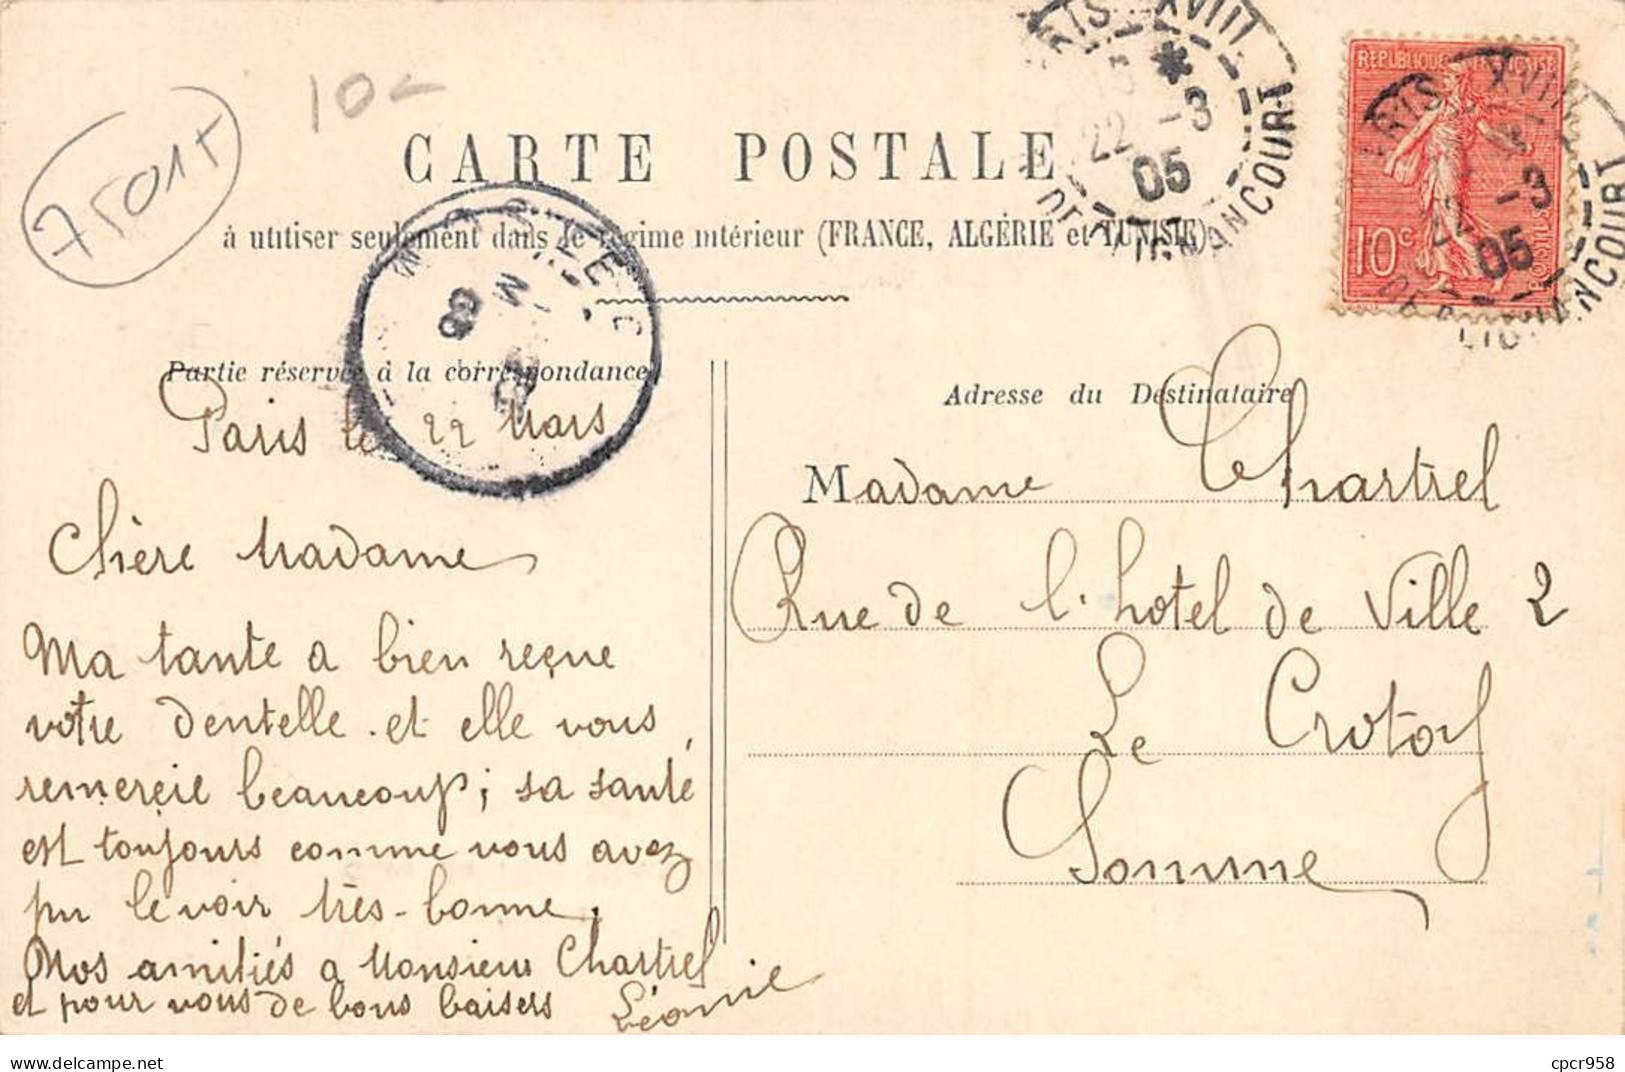 75017
10-
CARTE POSTALE
à utiliser seulement dans le régime intérieur (FRANCE, ALGÉRIE et TUNISIE)
REPUBLIQUE FRANÇAISE
10c
PARIS XVIII
22 -3
05
PARIS XVIII
22 -3
05
Partie réservée à la correspondance
Paris le 22 Mars
Chère Madame
Ma tante a bien reçue
votre dentelle. et elle vous
remerçie beaucoup; sa santé
est toujours comme vous avez
pu le voir très-bonne.
Mos amitiés a Monsieur Chartrel
et pour vous de bons baisers Léonie
Adresse du Destinataire
Madame Chartrel
Rue de l'hotel de Ville 2
Le Crotoy
Somme
cpcr958